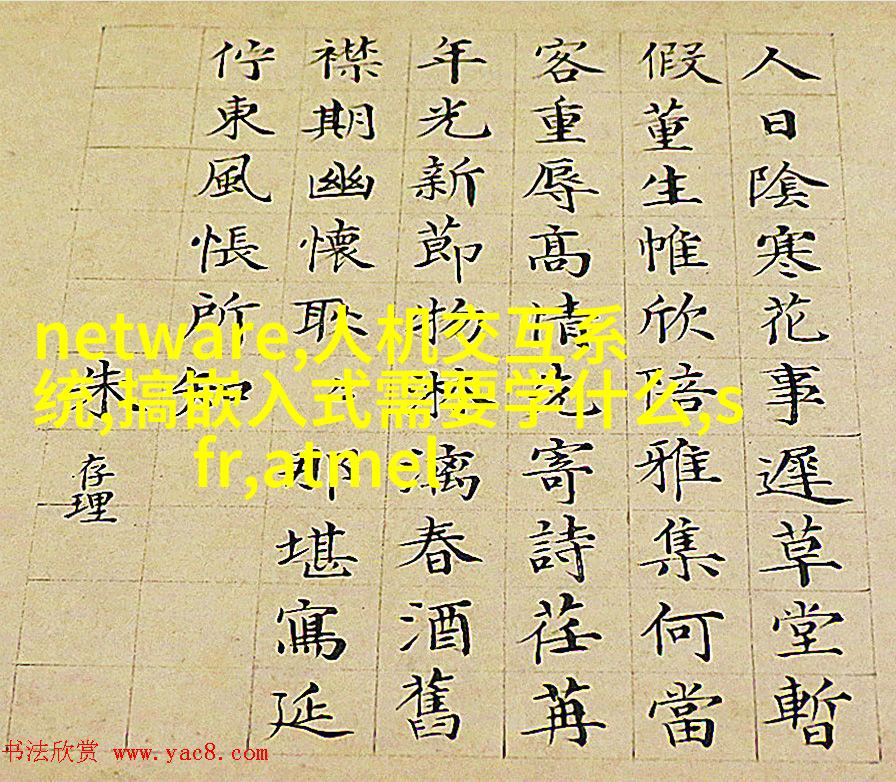 人日陰寒花事遲草堂暫
假董生帷欣陪雅集何當
客重辱高情先寄詩荏苒
年光新節物漓春酒舊
襟期幽懷耿那堪寫延
佇東風悵所
朱存理
netware,人机交互系
统,搞嵌入式需要学什么,s
fr,atmel
书法欣赏 www.yac8.com